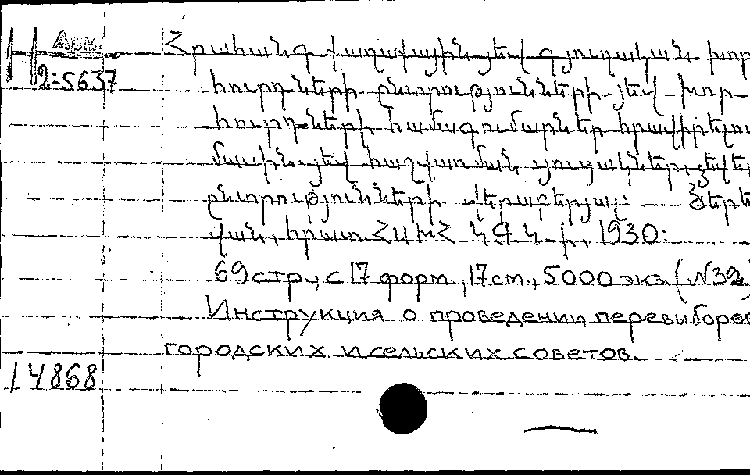 Арм.
Հ
2-5637
Հրահանգ քաղաքային յեվ գյուղական խոր
հուրդների ընտրությունների յեվ խոր-
հուրդների համագումարներ հրավիրելու
մասին յեվ հաշվառման ցուցակներ
ընտրությունների վերաբերյալ: Յերե
վան, հրատ ՀՍԽՀ ԿԳԿ-ի, 1930:
69 стр., с 17 форм, 17 см., 5000 экз. (№32)
Инструкция о проведении перевыборов
городских и сельских советов.
14868